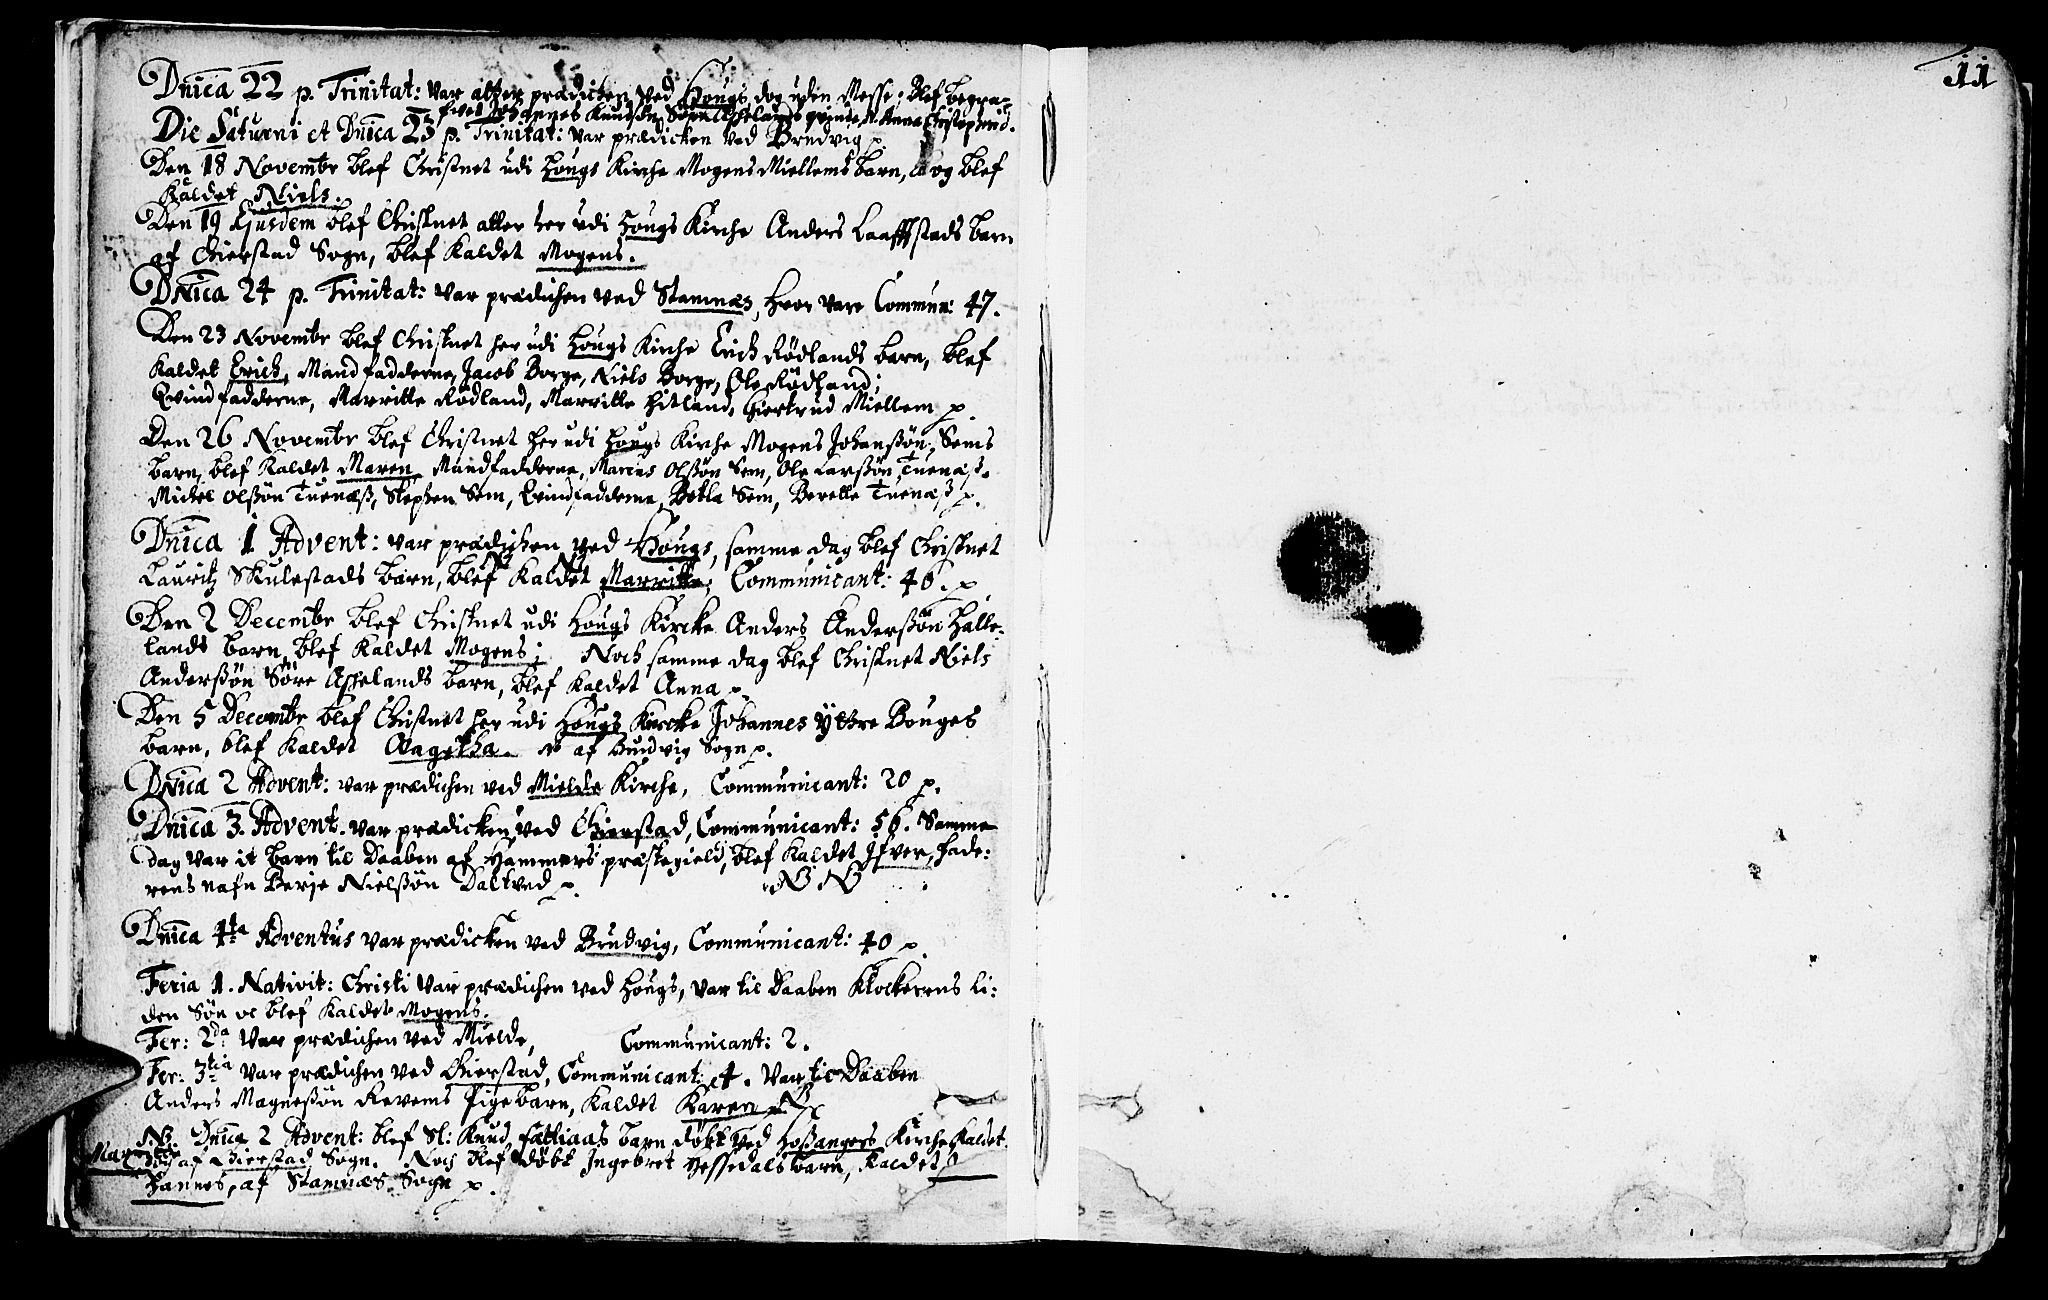 Dnica 22 p. Trinitat: var atter prædicken ved Hougs, dog uden Messe; Blef begra-
fvet Johannes Knudsøn Søre Asshelands qvinde, N. Anna Christophersd.
Die Saturni et Dnica 23 p. Trinitat: var prædicken ved Brudvig p.
Den 18 Novembr blef Christnet udi Hougs Kirche Mogens Miellems barn, og blef
Kaldet Niels.
Den 19 Ejusdem blef Christnet atter her udi Hougs Kirche Anders Laastads barn
af Gierstad Sogn, blef Kaldet Mogens.
Dnica 24 p. Trinitat: var prædichen ved Stamnæs, hvor vare Commun: 47.
Den 23 Novembr blef Christnet her udi Hougs Kirche Erich Rödlands barn, blef
Kaldet Erich, Mandfadderne, Jacob Borge, Niels Borge, Ole Rödland;
Qvindfadderne, Marritte Rödland, Marritte Hitland, Giertrud Miellem p.
Den 26 Novembr blef Christnet her udi Hougs Kirche Mogens Johanßön Sems
barn, blef Kaldet Maren, Mandfadderne, Marcus Olßön Sem, Ole Larßön Tuenæß.
Michel Olßön Tuenæß, Stephen Sem, Qvindfadderne, Botla Sem, Beritte Tuenæß p.
Dnica 1 Advent: var prædichen ved Hougs, samme dag blef Christnet
Lauritz Skulestads barn, blef Kaldet Marritte; Communicant: 46. p
Den 2 Decembr blef Christnet udi Hougs Kircke Anders Anderßön Halle-
lands barn, blef Kaldet Mogens; Noch samme dag blef Christnet Niels
Anderßön Söre Asselands barn, blef Kaldet Anna p
Den 5 Decembr blef Christnet her udi Hougs Kircke Johannes Yttre Bouges
barn, blef Kaldet Aagetha. af Brudvig Sogn p.
Dnica 2 Advent: var prædichen ved Mielde Kirche, Communicant: 20 p.
Dnica 3. Advent. var prædicken ved Gierstad, Communicant: 56. Samme
dag var it barn til Daaben af Hammers præstegield, blef Kaldet Ifver, Fade:
rens nafn Berje Nielßön Daltved p. NB NB
Dnica 4ta Adventus var prædicken ved Brudvig, Communicant: 40 p
Feria 1. Nativit: Christi var prædichen ved Hougs, var til Daaben Klockerens li:
den Sön oc blef Kaldet Mogens.
Fer: 2da Var prædichen ved Mielde, Communicant: 2.
Fer: 3tia var prædichen ved Gierstad, Communicant: 4. Var til Daaben
Anders Magneßön Revems Pigebarn, Kaldet Karen p
NB. Dnica 2 Advent: blef Sl: Knud barn döbt ved Hoßangers Kirche Kaldet
af Gierstad Sogn. Noch blef döbt Ingebret Hessedals barn, Kaldet
Hannes, af Stamnæs Sogn p.
11